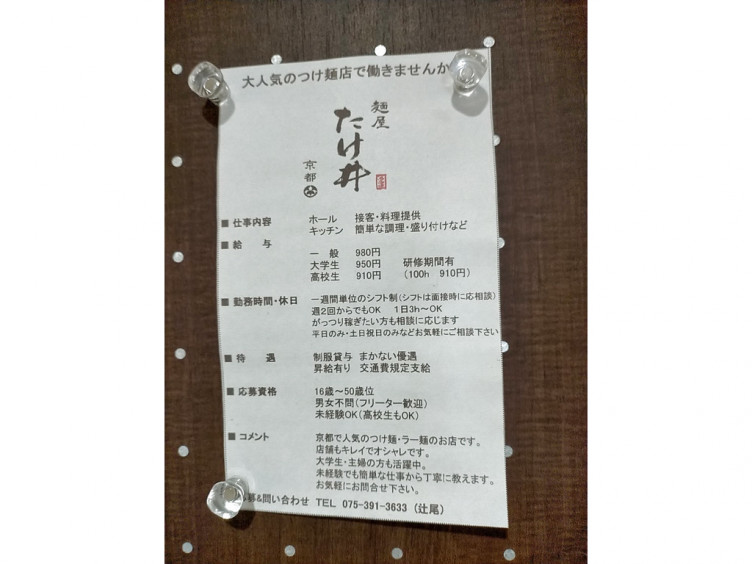 大人気のつけ麺店で働きませんか
麺屋
たけ井
京都
■ 仕事内容　ホール　接客・料理提供
キッチン　簡単な調理・盛り付けなど
■ 給　与
一　般　980円
大学生　950円　研修期間有
高校生　910円　(100h　910円)
■ 勤務時間・休日　一週間単位のシフト制(シフトは面接時に応相談)
週2回からでもOK　1日3h～OK
がっつり稼ぎたい方も相談に応じます
平日のみ・土日祝日のみなどお気軽にご相談下さい
■ 待　遇　制服貸与　まかない優遇
昇給有り　交通費規定支給
■ 応募資格　16歳～50歳位
男女不問(フリーター歓迎)
未経験OK(高校生もOK)
■ コメント　京都で人気のつけ麺・ラー麺のお店です。
店舗もキレイでオシャレです。
大学生・主婦の方も活躍中。
未経験でも簡単な仕事から丁寧に教えます。
お気軽にお問合せ下さい。
募&問い合わせ　TEL　075-391-3633　(辻尾)